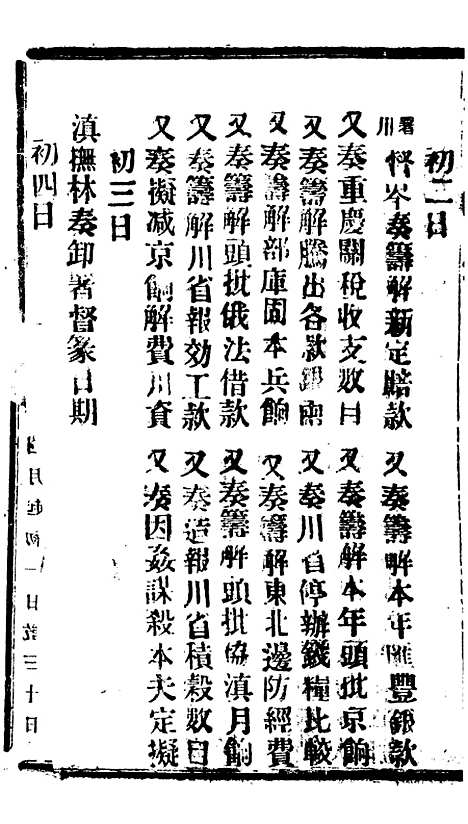 初二日
署川督岑奏籌解新定賠款　又奏籌解本年匯豐銀款
又奏重慶關稅收支数目　又奏籌解本年頭批京餉
又奏籌解騰出各款銀両　又奏川省停辦錢糧比較
又奏籌解部庫固本兵餉　又奏籌解東北邊防經費
又奏籌解頭批俄法借款　又奏籌解頭批協滇月餉
又奏籌解川省報効工款　又奏造報川省積穀数目
又奏擬减京餉解費川資　又奏因姦謀殺本夫定擬
初三日
滇撫林奏卸署督篆日期
初四日
月起初一日訖三十日